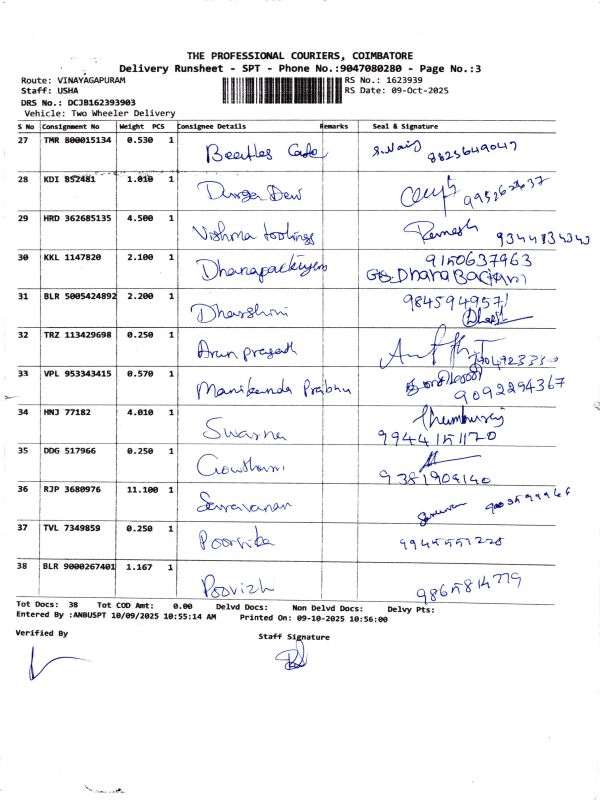 THE PROFESSIONAL COURIERS, COIMBATORE
Delivery Runsheet - SPT - Phone No.:9047080280 - Page No.:3
Route: VINAYAGAPURAM RS No.: 1623939
Staff: USHA RS Date: 09-Oct-2025
DRS No.: DCJB162393903
Vehicle: Two Wheeler Delivery
S No Consignment No Weight PCS Consignee Details Remarks Seal & Signature
27 TMR 800015134 0.530 1 Beetles Cafe 8825649047
28 KDI 852481 1.010 1 Durga Devi
29 HRD 362685135 4.500 1 Vishma toolings Ramesh
30 KKL 1147820 2.100 1 9150637963
Dhanapackiyam
31 BLR 5005424892 2.200 1 Dharshini 9845949571
32 TRZ 113429698 0.250 1 Arun prasath
33 VPL 953343415 0.570 1 Manikanda Prabhu 9092294367
34 HNJ 77182 4.010 1 Swarna 9944151170
35 DDG 517966 0.250 1 Gowthami 9381909140
36 RJP 3680976 11.100 1 Saravanan
37 TVL 7349859 0.250 1 Poorvika
38 BLR 9000267401 1.167 1 Poovizh 9865814779
Tot Docs: 38 Tot COD Amt: 0.00 Delvd Docs: Non Delvd Docs: Delvy Pts:
Entered By :ANBUSPT 10/09/2025 10:55:14 AM Printed On: 09-10-2025 10:56:00
Verified By Staff Signature